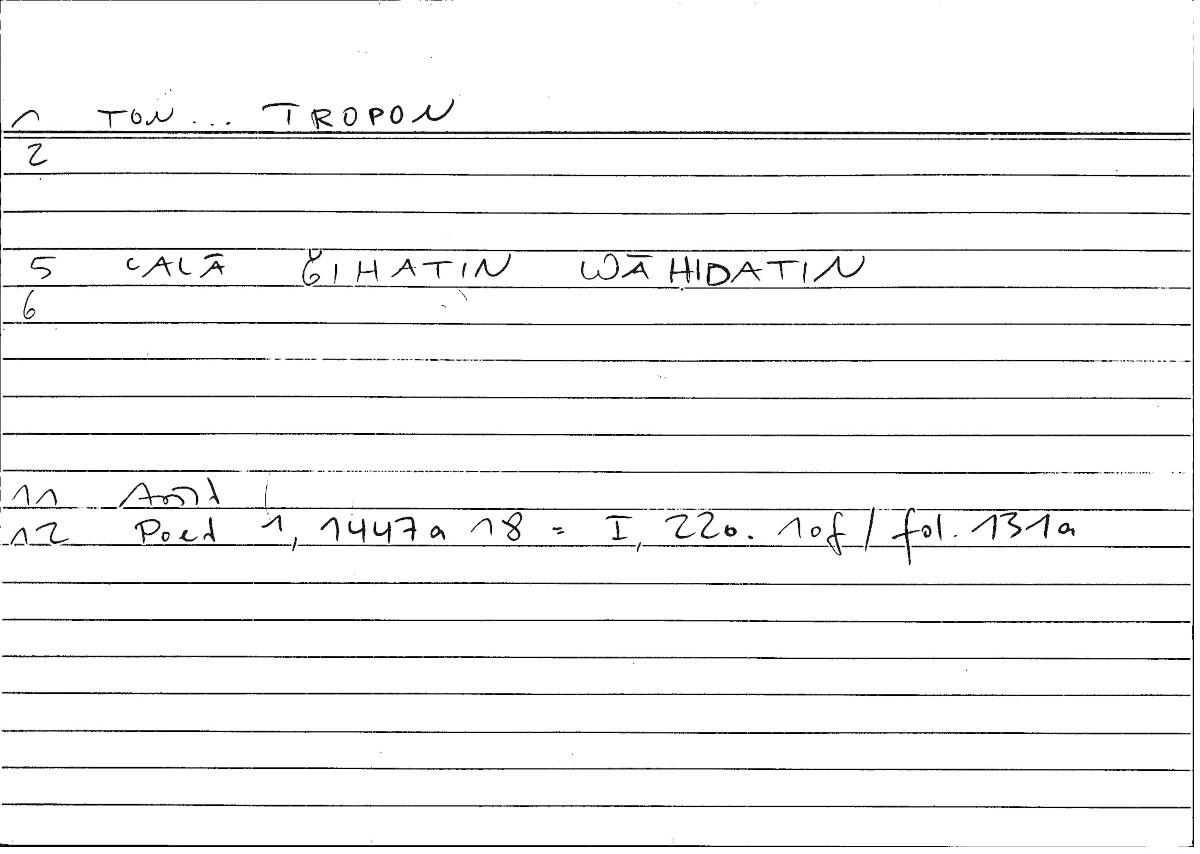 1 TON... TROPON
2
5 ʿALĀ ǦIHATIN WĀḤIDATIN
6
11
12 Poet 1, 1447a 18 = I, 220. 10f / fol. 131a